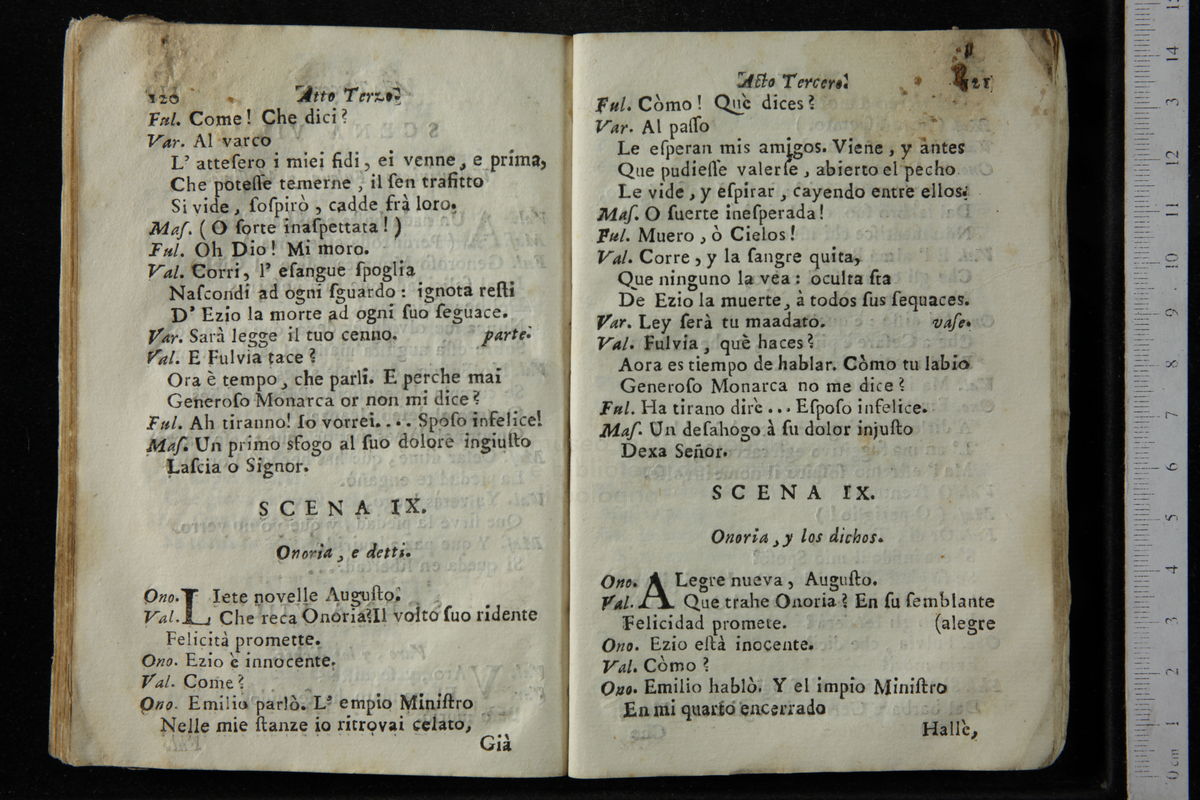 120 Atto Terzo.
Ful. Come! Che dici?
Var. Al varco
L' atteſero i miei fidi, ei venne, e prima,
Che poteſſe temerne, il ſen trafitto
Si vide, ſoſpirò, cadde frà loro.
Maſ. (O ſorte inaſpettata!)
Ful. Oh Dio! Mi moro.
Val. Corri, l' eſangue ſpoglia
Naſcondi ad ogni ſguardo: ignota reſti
D' Ezio la morte ad ogni ſuo ſeguace.
Var. Sarà legge il tuo cenno. parte.
Val. E Fulvia tace?
Ora è tempo, che parli. E perche mai
Generoſo Monarca or non mi dice?
Ful. Ah tiranno! Io vorrei.... Spoſo infelice!
Maſ. Un primo sfogo al ſuo dolore ingiuſto
Laſcia o Signor.
SCENA IX.
Onoria, e detti.
Ono. LIete novelle Auguſto.
Val. Che reca Onoria? Il volto ſuo ridente
Felicità promette.
Ono. Ezio è innocente.
Val. Come?
Ono. Emilio parlò. L' empio Miniſtro
Nelle mie ſtanze io ritrovai celato,
Già
Acto Tercero. 121
Ful. Còmo! Què dices?
Var. Al paſſo
Le eſperan mis amigos. Viene, y antes
Que pudieſſe valerſe, abierto el pecho
Le vide, y eſpirar, cayendo entre ellos.
Maſ. O ſuerte ineſperada!
Ful. Muero, ò Cielos!
Val. Corre, y la ſangre quita,
Que ninguno la vea: oculta ſta
De Ezio la muerte, à todos ſus ſequaces.
Var. Ley ſerà tu maadato. vaſe.
Val. Fulvia, què haces?
Aora es tiempo de hablar. Còmo tu labio
Generoſo Monarca no me dice?
Ful. Ha tirano dirè... Eſpoſo infelice.
Maſ. Un deſahogo à ſu dolor injuſto
Dexa Señor.
SCENA IX.
Onoria, y los dichos.
Ono. ALegre nueva, Auguſto.
Val. Que trahe Onoria? En ſu ſemblante
Felicidad promete. (alegre
Ono. Ezio eſtà inocente.
Val. Còmo?
Ono. Emilio hablò. Y el impio Miniſtro
En mi quarto encerrado
Hallè,
14
3
12
11
10
9
8
7
6
5
4
3
2
1
0 cm